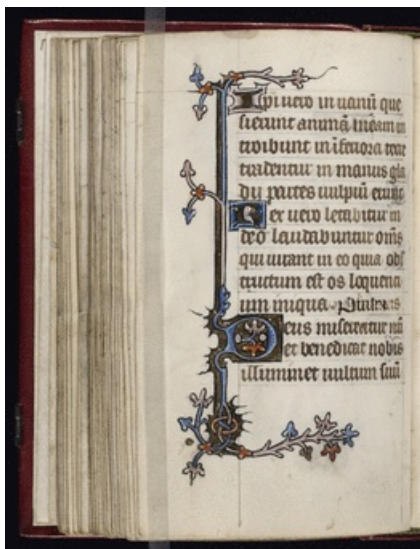 Ipi uero in uanũ que
sierunt animã meam in
troibunt in iferiora terre
tradentur in manus gla
dii partes uulpiũ erunt
Rex uero letabitur in
deo laudabuntur oms̃
qui iurant in eo quia obs
tructum est os loquenti
um iniqua. Psalmus
Deus misereatur nr̃i
et benedicat nobis
illuminet uultum suũ